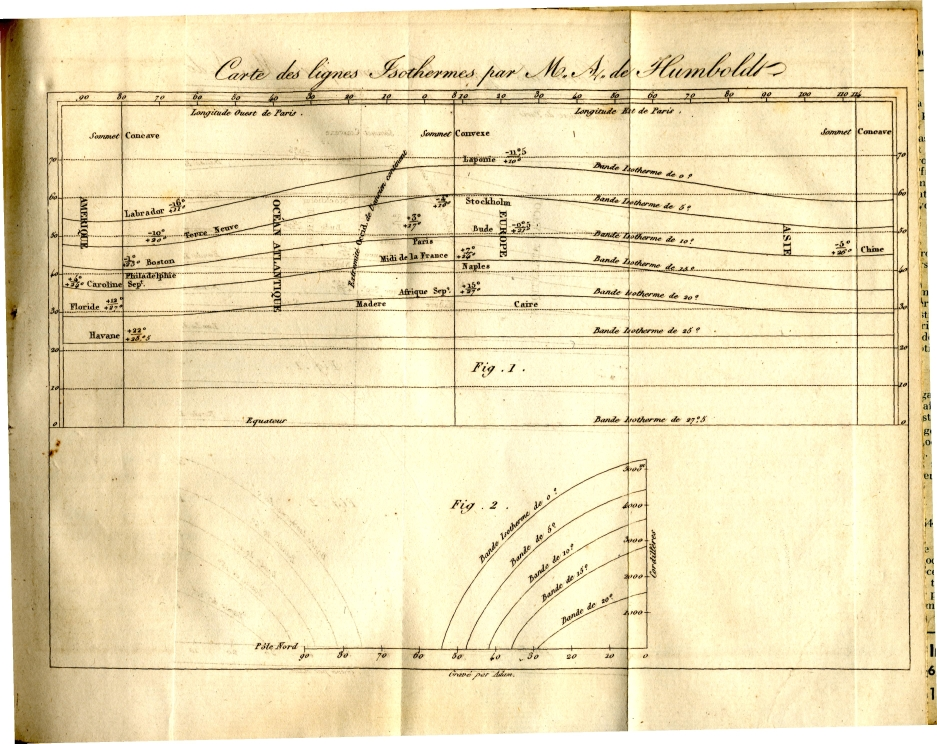 Carte des lignes Isothermes par M. A. de Humboldt
90 80 70 60 50 40 30 20 10 0 8 10 20 30 40 50 60 70 80 90 100 110 114
Longitude Ouest de Paris. Longitude Est de Paris.
Sommet Concave Sommet Convexe Sommet Concave
70 Laponie -11°5 +10° Bande Isotherme de 0° 70
60 Stockholm Bande Isotherme de 5° 60
Labrador
AMERIQUE
OCÉAN ATLANTIQUE
Extrémité Occid. de l'ancien continent
EUROPE
ASIE
-10° +20° Terre Neuve
+3° +17° Bude
50 Paris Bande Isotherme de 10° 50
-5° +26° Chine
Boston Midi de la France Naples Bande Isotherme de 15°
40 Philadelphie 40
Caroline Sep.
Afrique Sep. +15° +27° Bande Isotherme de 20°
Floride +12° +27° Madere Caire
30 30
Havane +22° +28°5 Bande Isotherme de 25°
20 20
Fig. 1
10 10
0 Equateur Bande Isotherme de 27°5 0
Fig. 2
5000 m
4000
3000
2000
1000
Cordillères
Bande Isotherme de 0°
Bande de 5°
Bande de 10°
Bande de 15°
Bande de 20°
Pôle Nord
90 80 70 60 50 40 30 20 10 0
Gravé par Adam.